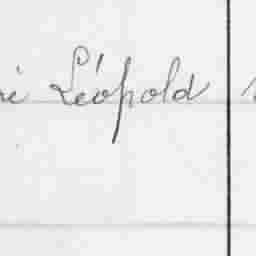 Léopold